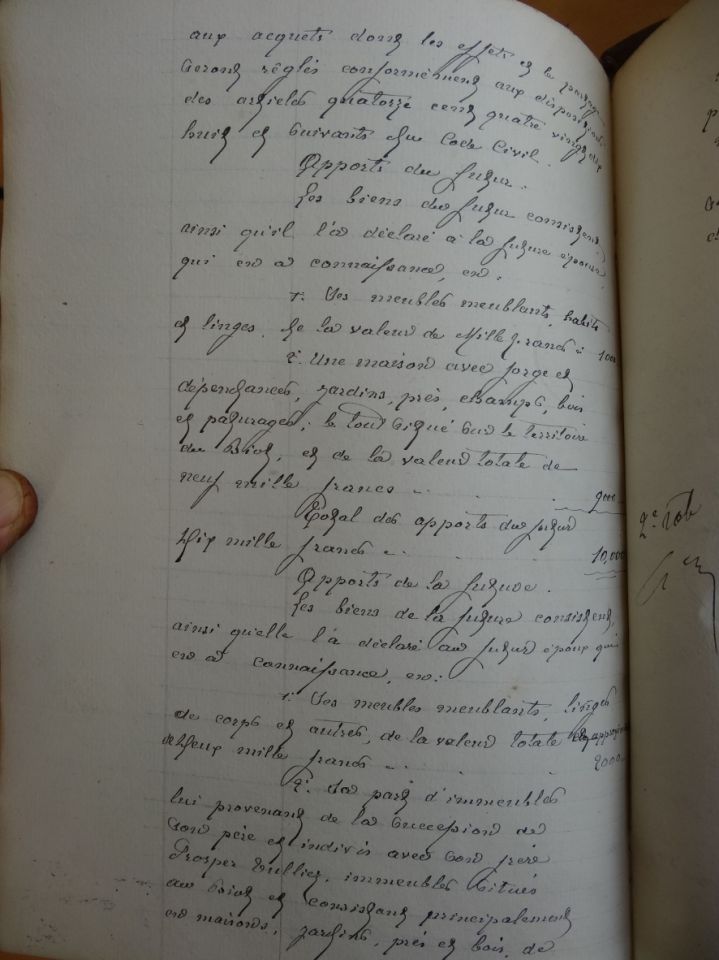 aux acquets dont les effets et le partage
seront réglés conformément aux dispositions
des articles quatorze cent quatre vingt dix
huit et suivants du Code Civil.
Apports du futur.
Les biens du futur consistent
ainsi qu'il l'a déclaré à la future épouse,
qui en a connaissance, en:
1°. Ses meubles meublants, habits
et linges, de la valeur de Mille francs 1000
2°. Une maison avec forge et
dépendances, jardins, prés, champs, bois
et paturages; le tout situé sur le territoire
du Biot, et de la valeur totale de
neuf mille francs 9000
Total des apports du futur
Dix mille francs 10,000
Apports de la future.
Les biens de la future consistent,
ainsi qu'elle l'a déclaré au futur époux qui
en a connaissance, en:
1°. Ses meubles meublants, linges
de corps et autres, de la valeur totale
de Deux mille francs 2000
2°. Sa part d'immeubles
lui provenant de la succession de
son père et indivis avec son frère
Prosper Vulliez, immeubles situés
au Biot et consistant principalement
en maisons, jardins, prés et bois, de
2e